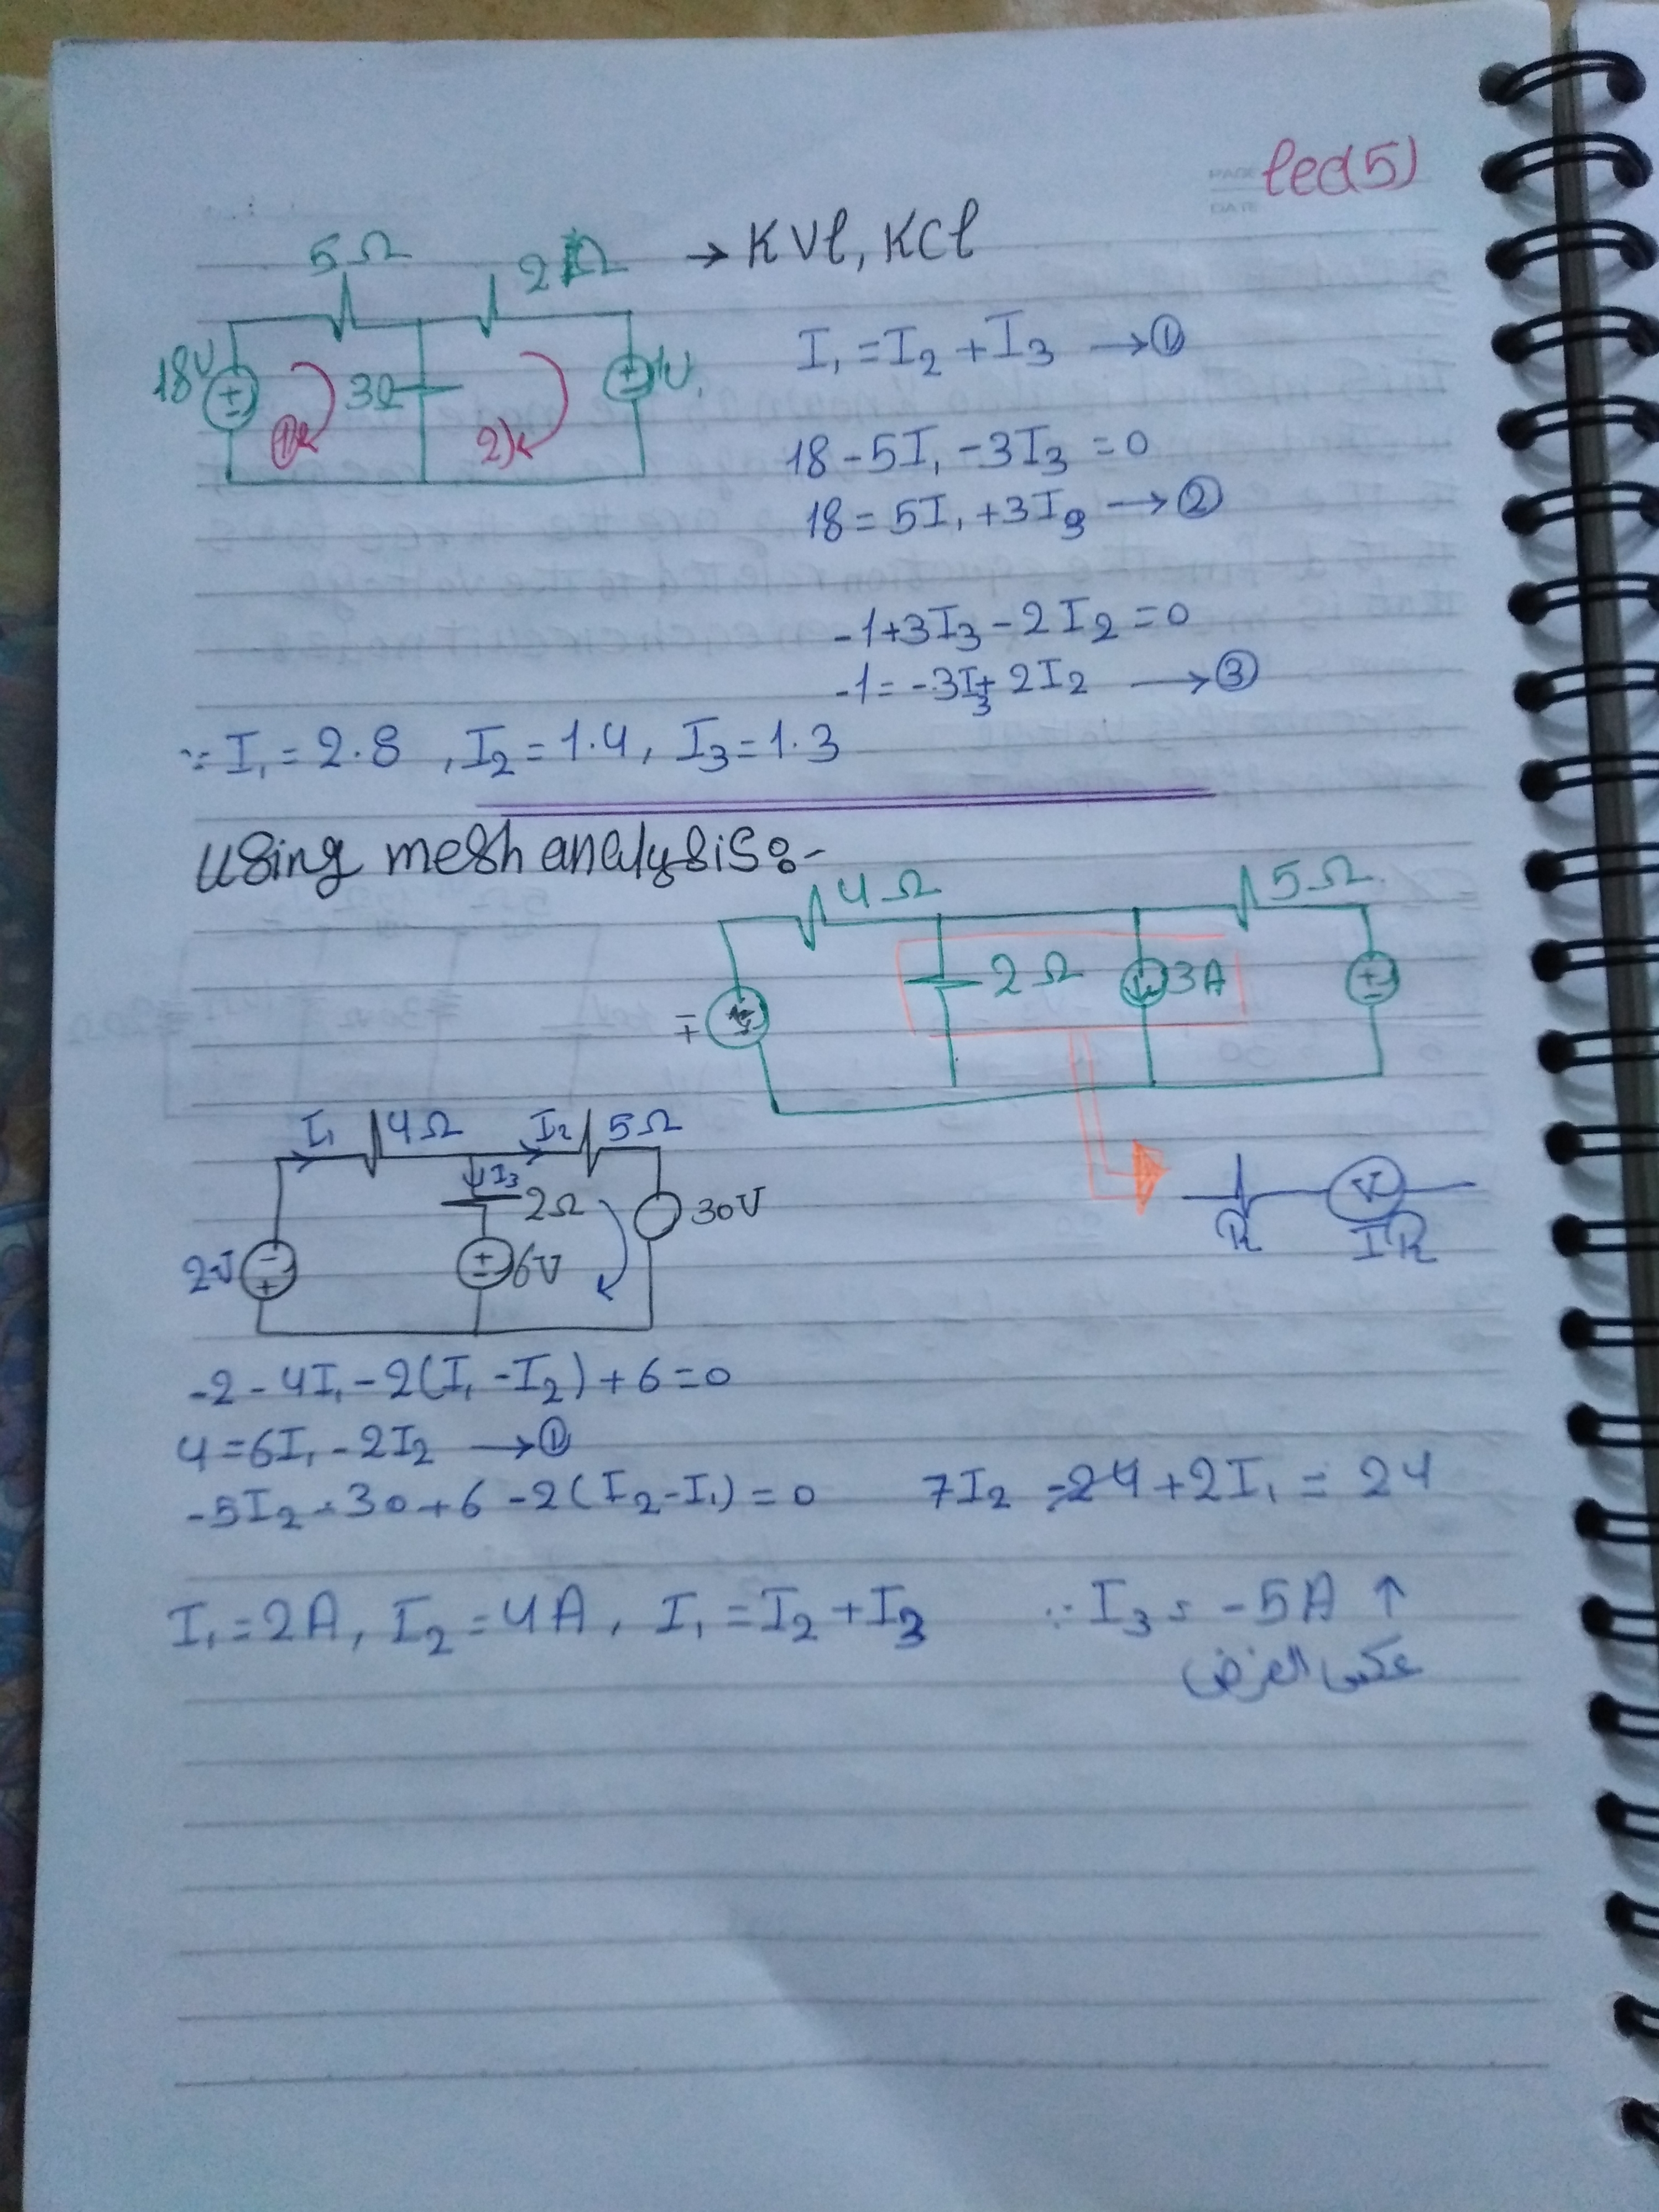 lec(5)
PAGE
DATE
5Ω
2Ω
→ KVl, KCl
18V
3Ω
1V
1
2)
I₁ = I₂ + I₃ → ①
18 - 5I₁ - 3I₃ = 0
18 = 5I₁ + 3I₃ → ②
-1 + 3I₃ - 2I₂ = 0
-1 = -3I₃ + 2I₂ → ③
∵ I₁ = 2.8 , I₂ = 1.4 , I₃ = 1.3
using mesh analysis:-
4Ω
5Ω
2Ω
3A
I₁ 4Ω I₂ 5Ω
I₃
2Ω
30V
2V
6V
R
V
IR
-2 - 4I₁ - 2(I₁ - I₂) + 6 = 0
4 = 6I₁ - 2I₂ → ①
-5I₂ - 30 + 6 - 2(I₂ - I₁) = 0 7I₂ + 2I₁ = 24
I₁ = 2A , I₂ = 4A , I₁ = I₂ + I₃ ∵ I₃ = -5A ↑
عكس الفرض